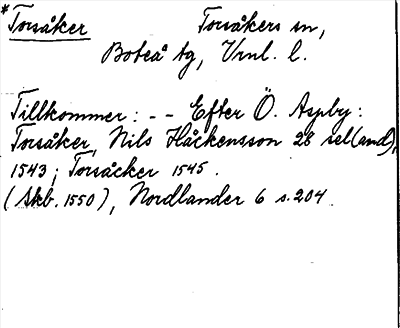 *Torsåker Torsåkers sn,
Boteå tg, Vrnl. l.
Tillkommer: -- Efter Ö. Aspby:
Torsåker, Nils Håckensson 28 sel(and),
1543; Torsåcker 1545.
(Skb. 1550), Nordlander 6 s. 204.